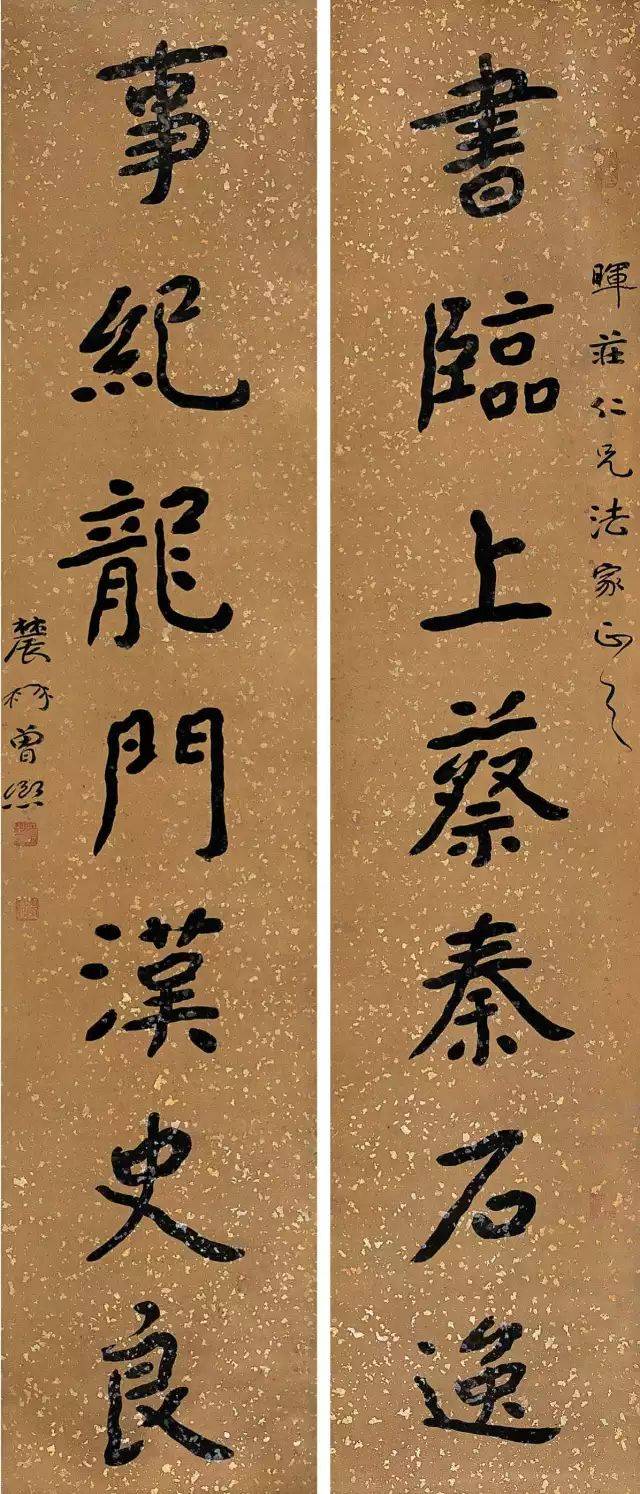 暉莊仁兄法家正之
書臨上蔡秦石逸
事紀龍門漢史良
農髯曾熙